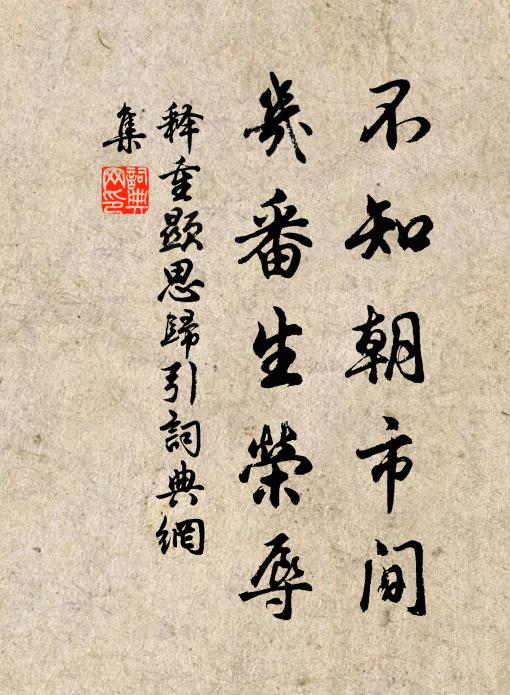 不知朝市间
几番生荣辱
释重显思归引词典网
集
词典网印